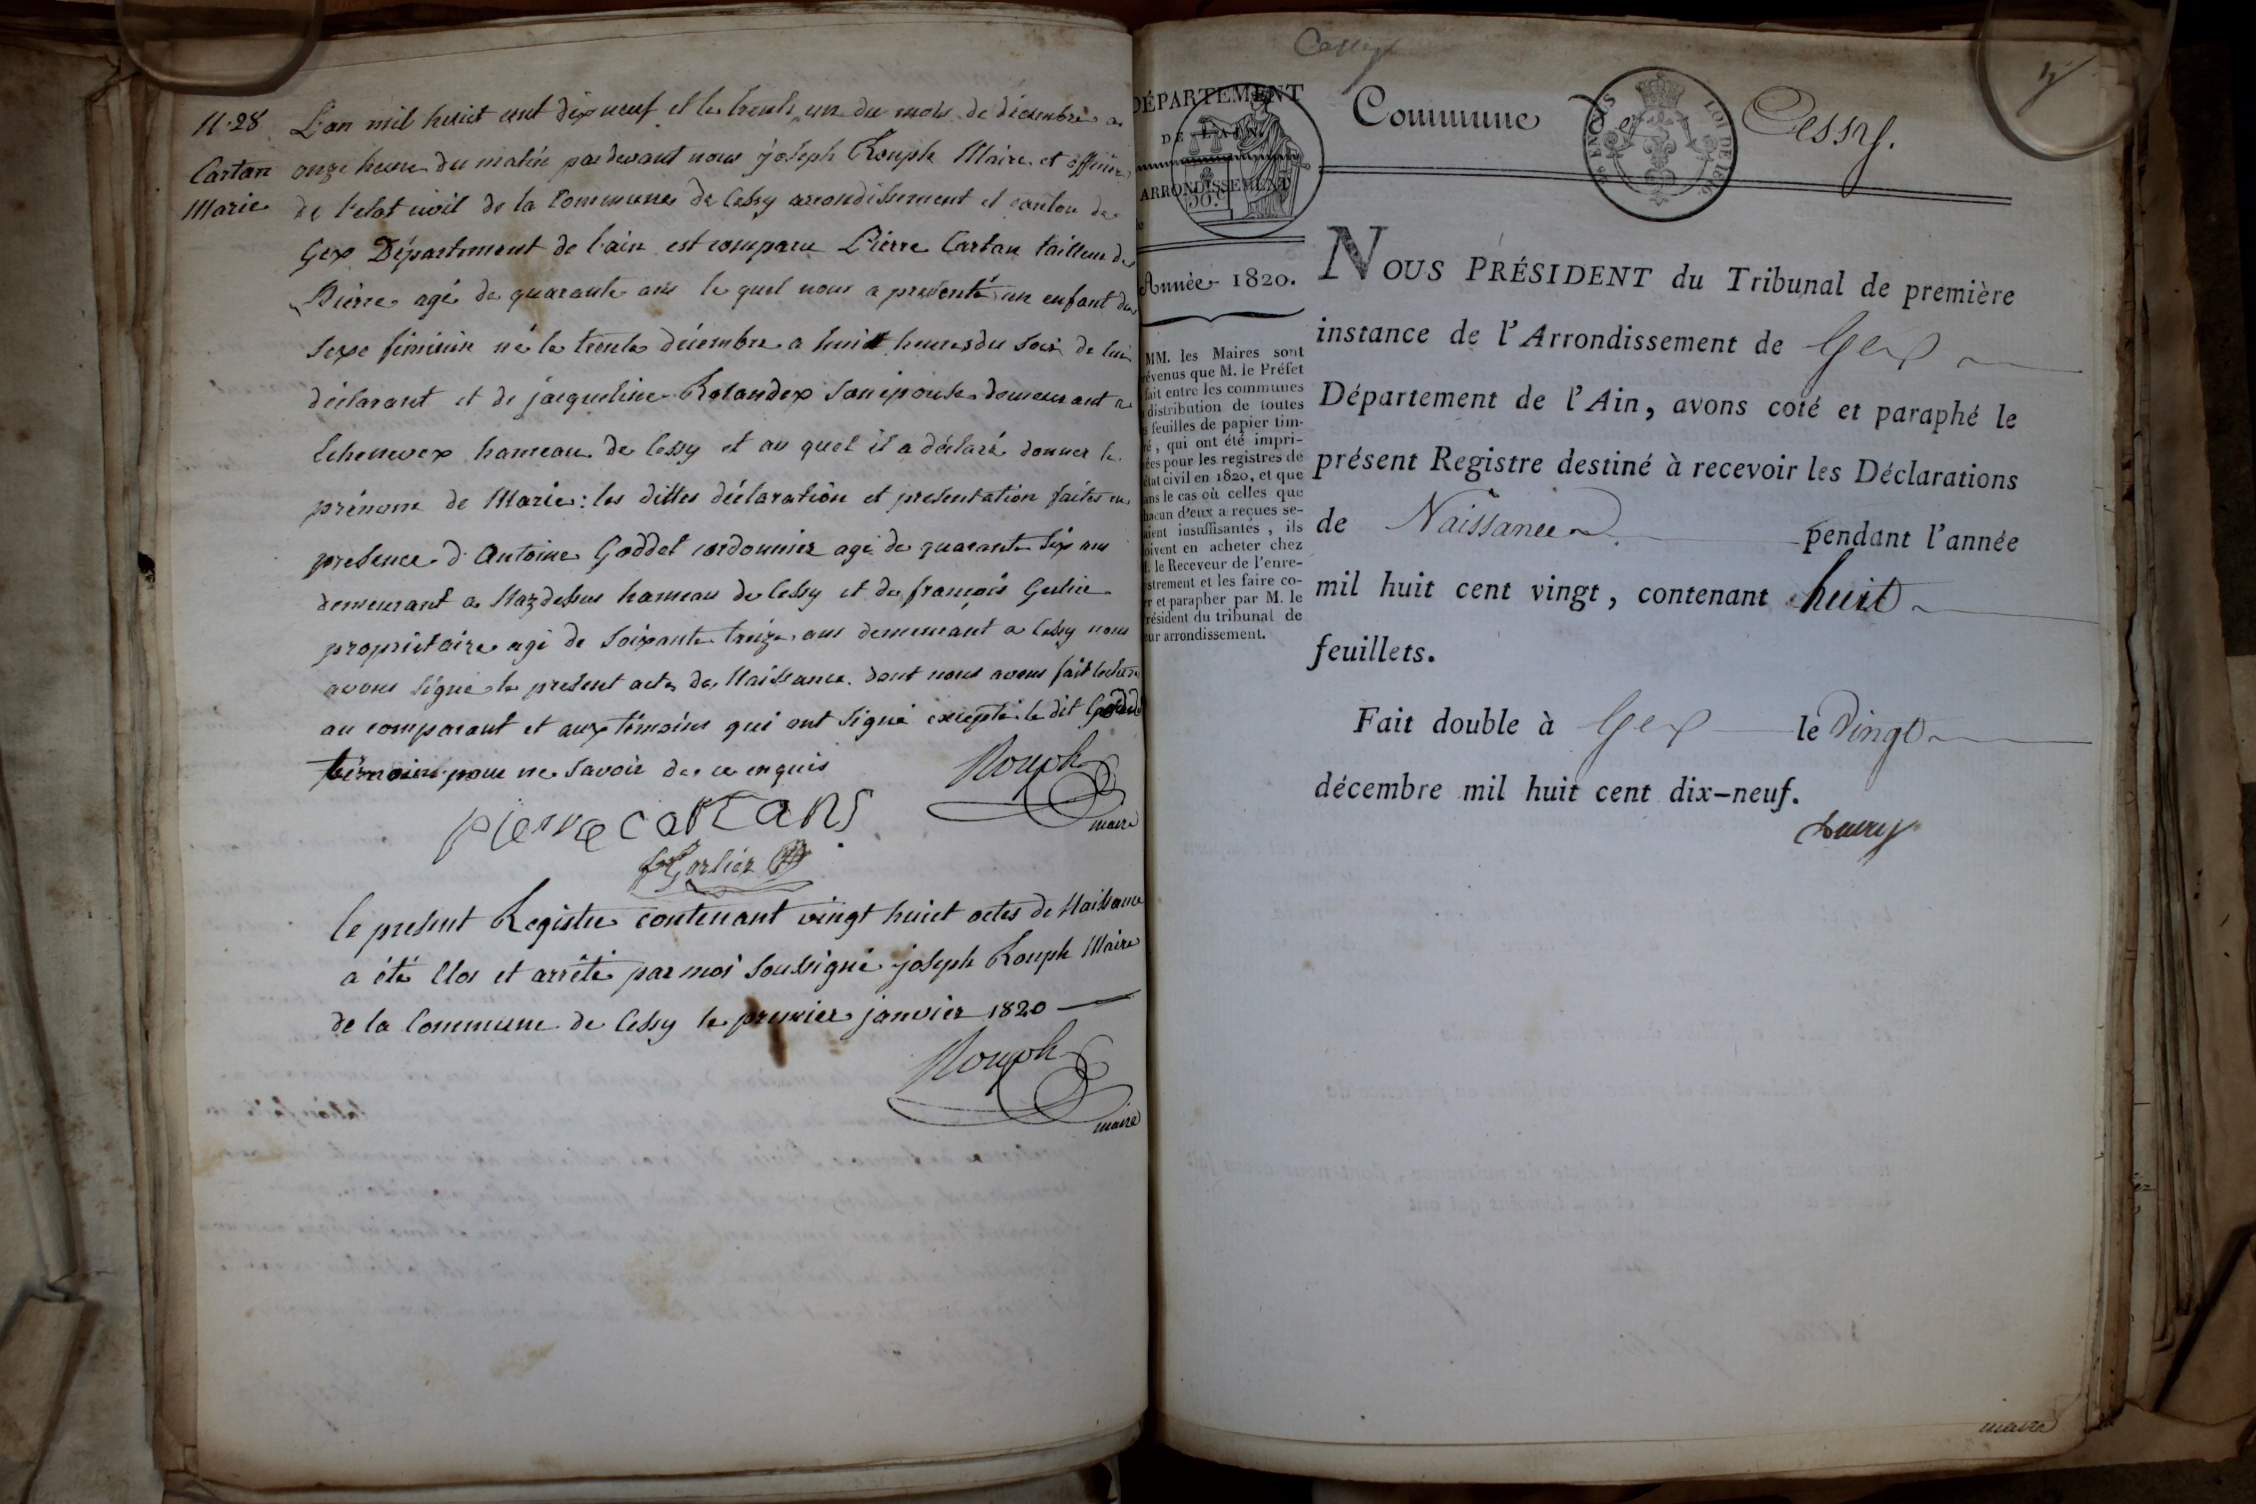 N. 28
Cartan
Marie
L'an mil huict cent dix neuf et le trente un du mois de décembre a
onze heure du matin par devant nous joseph Rouph Maire et officier
de l'etat civil de la Commune de Cessy arrondissement et canton de
Gex Département de l'ain est comparu Pierre Cartan tailleur de
Pierre agé de quarante ans le quel nous a presenté un enfant du
sexe féminin né le trente décembre a huit heures du soir de lui
déclarant et de jacqueline Rolandex son épouse demeurant a
Echenevex hameau de Cessy et au quel il a déclaré donner le
prénom de Marie: les dittes déclaration et presentation faites en
presence d'Antoine Goddet cordonnier agé de quarante six ans
demeurant a Mazdessus hameau de Cessy et de françois Gerlier
propriétaire agé de soixante treize ans demeurant a Cessy nous
avons signé le present acte de Naissance dont nous avons fait lecture
au comparant et aux témoins qui ont signé excepté le dit Goddet
témoins pour ne savoir de ce enquis
Rouph
maire
pierre cartans
Gerlier
le present Registre contenant vingt huict actes de Naissance
a été Clos et arrêté par moi soussigné joseph Rouph Maire
de la Commune de Cessy le premier janvier 1820
Rouph
maire
Cessy
DÉPARTEMENT
DE L'AIN
ARRONDISSEMENT
Année 1820.
MM. les Maires sont
évenus que M. le Préfet
fait entre les communes
distribution de toutes
s feuilles de papier tim-
ré, qui ont été impri-
ées pour les registres de
état civil en 1820, et que
ans le cas où celles que
hacun d'eux a reçues se-
aient insuffisantes, ils
oivent en acheter chez
. le Receveur de l'enre-
istrement et les faire co-
r et parapher par M. le
résident du tribunal de
eur arrondissement.
Commune de Cessy.
LOI DE 1816
NOUS PRÉSIDENT du Tribunal de première
instance de l'Arrondissement de Gex
Département de l'Ain, avons coté et paraphé le
présent Registre destiné à recevoir les Déclarations
de Naissance pendant l'année
mil huit cent vingt, contenant huit
feuillets.
Fait double à Gex le Vingt
décembre mil huit cent dix-neuf.
maire